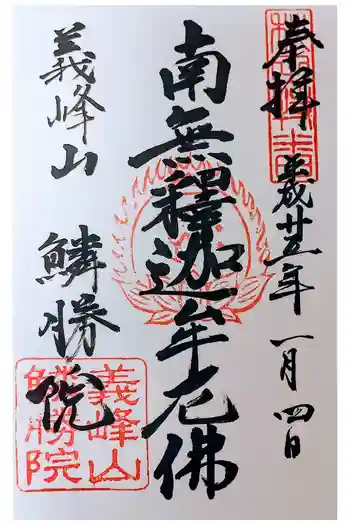 奉拝
平成廿五年
一月四日
南無釋迦牟尼佛
義峰山
麟勝院
義峰山
麟勝院